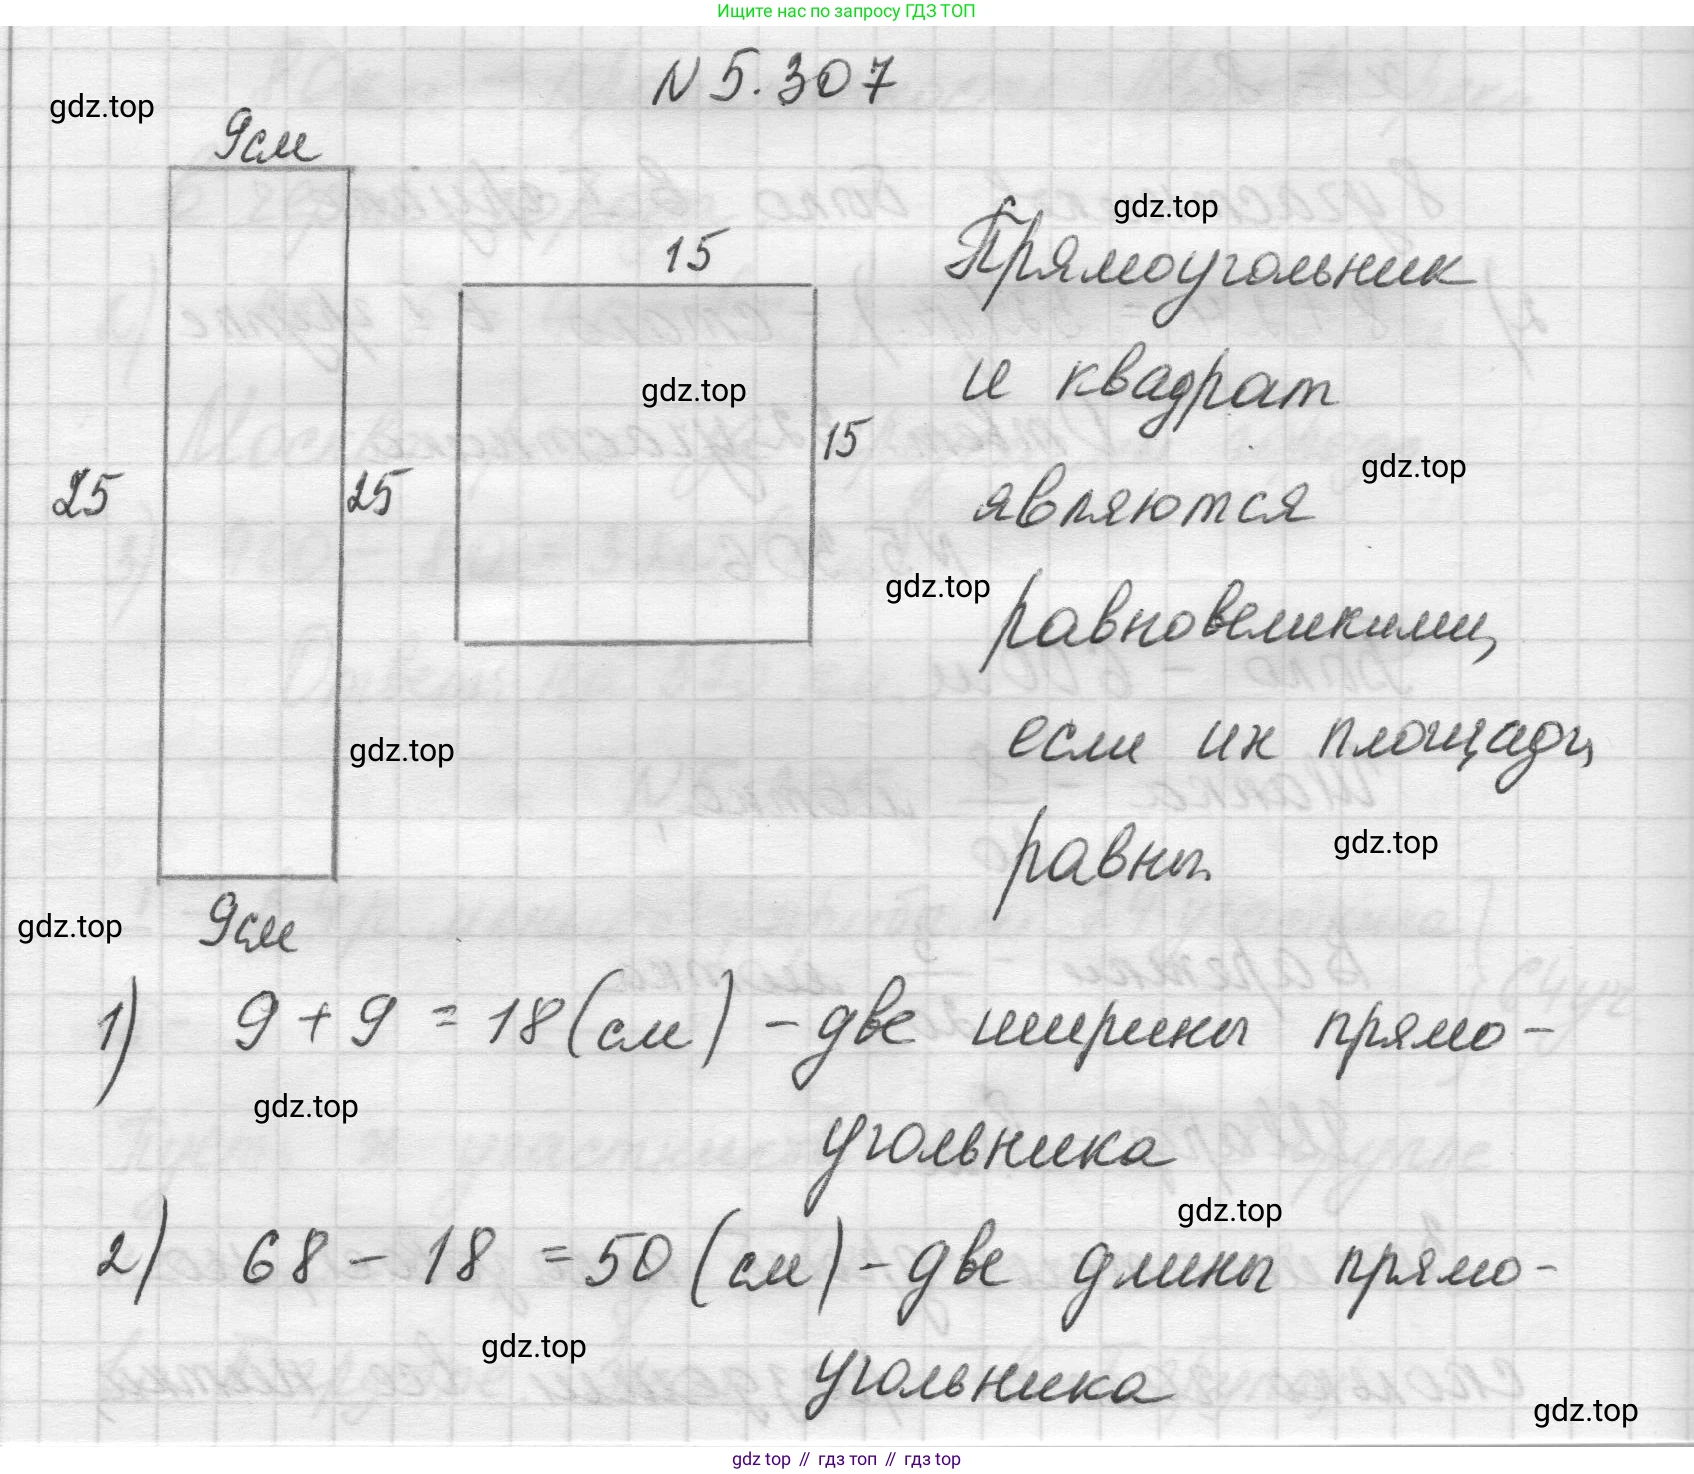 Ищите нас по запросу ГДЗ ТОП
N 5.307
gdz.top
9см
gdz.top
15
Прямоугольник
и квадрат
gdz.top
15
gdz.top
25
25
являются
gdz.top
равновеликими,
если их площади,
gdz.top
равны.
gdz.top
gdz.top
9см
1) 9 + 9 = 18 (см) - две ширины прямо-
gdz.top
угольника
gdz.top
2) 68 - 18 = 50 (см) - две длины прямо-
gdz.top
угольника
gdz.top
gdz top // гдз топ // гдз top